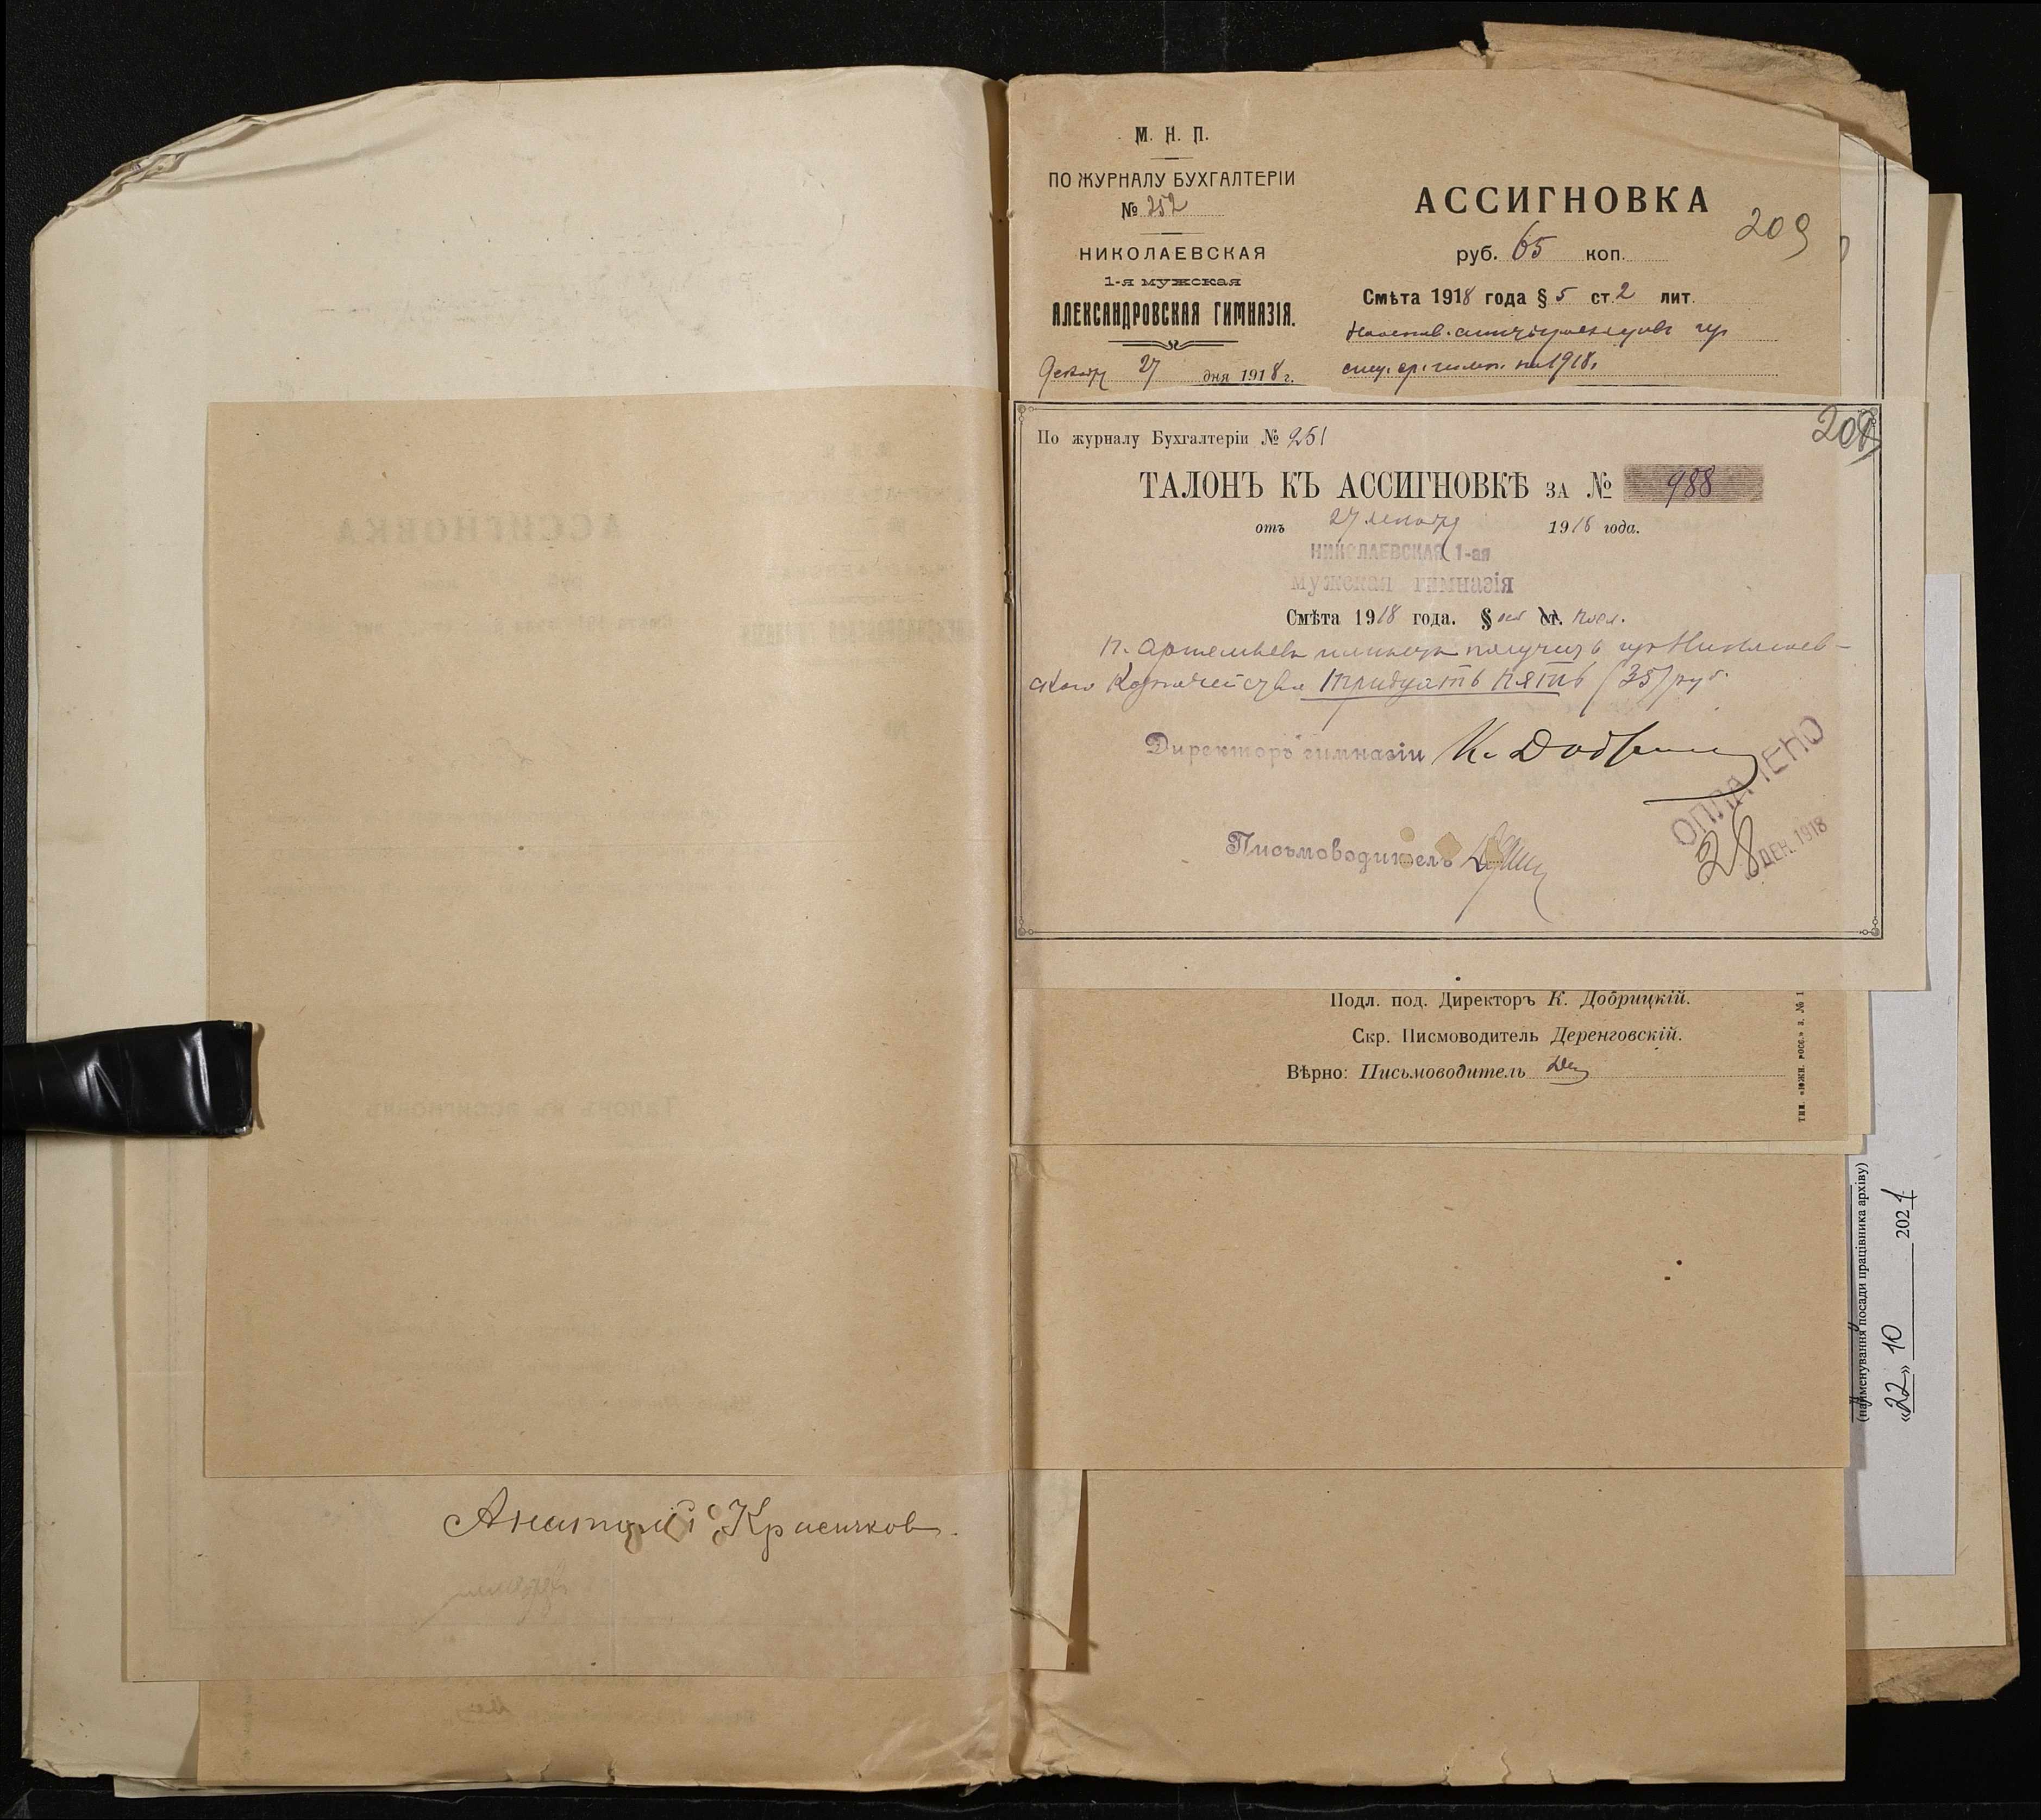 М. Н. П.
ПО ЖУРНАЛУ БУХГАЛТЕРІИ
№ 252
НИКОЛАЕВСКАЯ
1-я мужская
АЛЕКСАНДРОВСКАЯ ГИМНАЗІЯ.
27 дня 1918 г.
АССИГНОВКА
209
руб. 65 коп.
Смѣта 1918 года § 5 ст. 2 лит.
на 1918.
По журналу Бухгалтеріи № 251
208
ТАЛОНЪ КЪ АССИГНОВКѢ ЗА № 988
отъ 27 декабря 1918 года.
НИКОЛАЕВСКАЯ 1-ая
мужская гимназія
Смѣта 1918 года. § ст.
получить Николаев-
скаго Казначейства тридцать пять (35) руб.
Директоръ гимназіи К.
ОПЛАЧЕНО
28 ДЕК. 1918
Письмоводитель
Подл. под. Директоръ К. Добрицкій.
Скр. Писмоводитель Деренговскій.
Вѣрно: Письмоводитель
тип. «южн. росс.» з. № 1
Анатолій Красичков.
(найменування посади працівника архіву)
«22» 10 2021